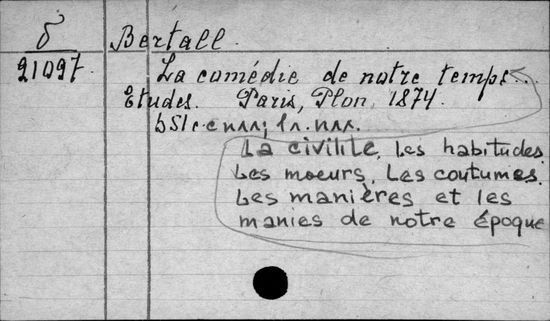 δ Bertall.
21097. La comédie de notre temps...
Etudes. Paris, Plon, 1874.
La civilité, Les habitudes.
Les moeurs, Les coutumes.
Les manières et les
manies de notre époque